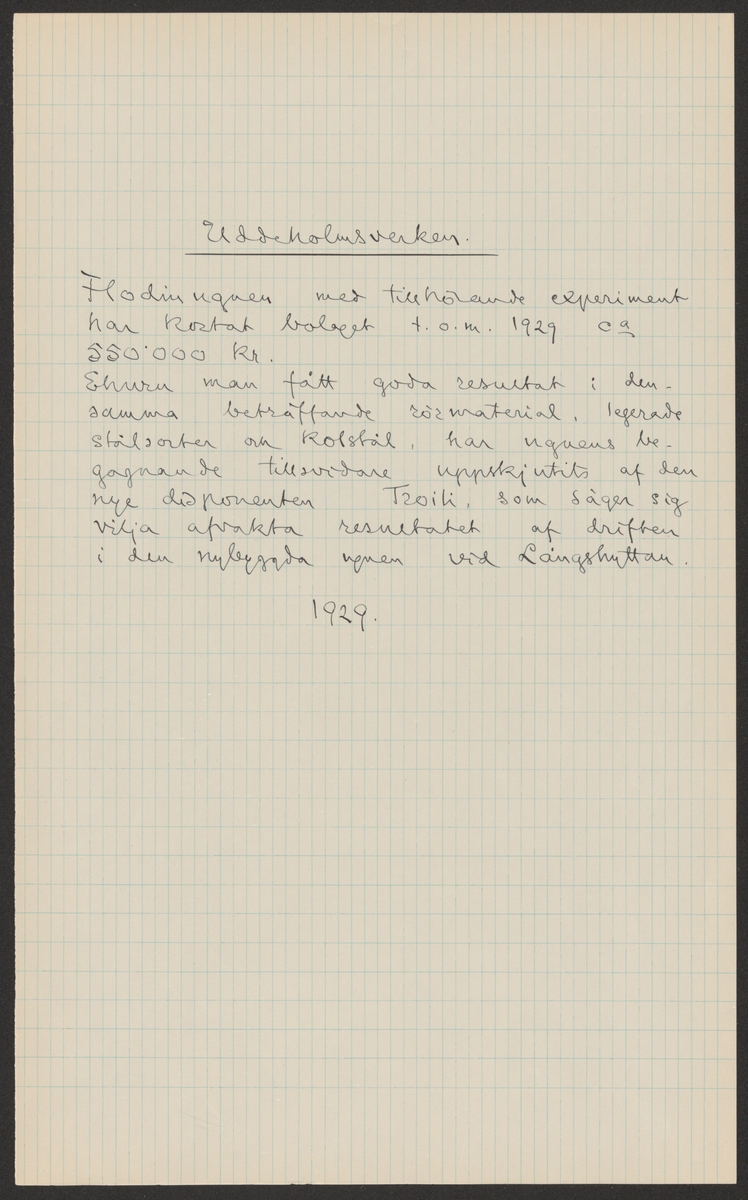 Uddeholmsverken.
Flodinugnen med tillhörande experiment
har kostat bolaget t.o.m. 1929 ca
550'000 kr.
Ehuru man fått goda resultat i den-
samma beträffande rörmaterial, legerade
stålsorter och kolstål, har ugnens be-
gagnande tillsvidare uppskjutits af den
nye disponenten Troili, som säger sig
vilja afvakta resultatet af driften
i den nybyggda ugnen vid Långshyttan.
1929.